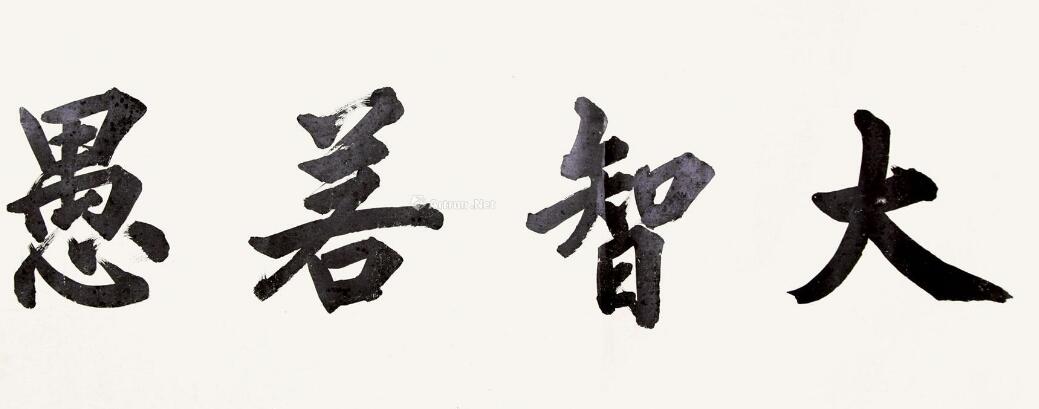 大智若愚
Artron.Net